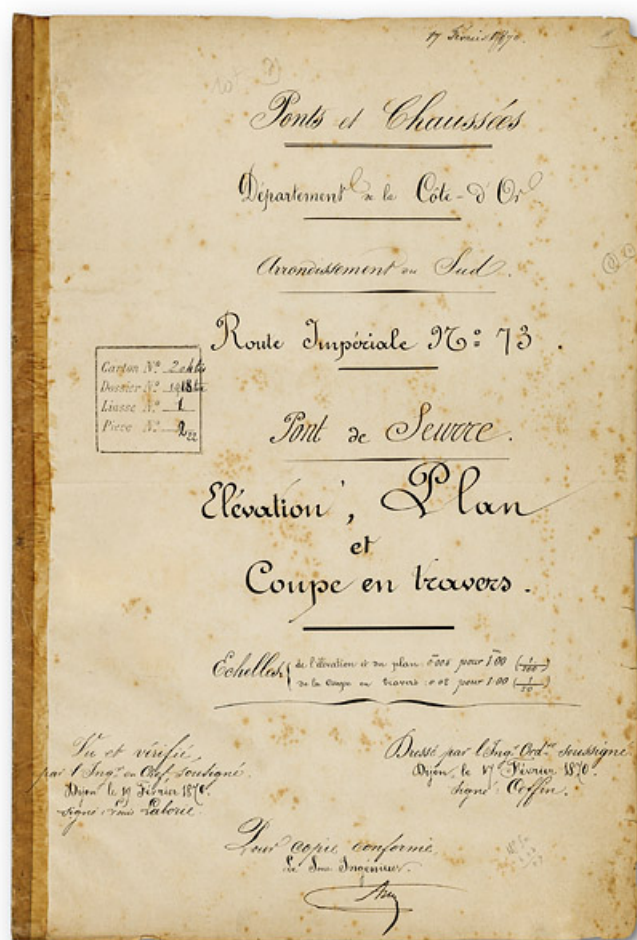 17 Février 1870.
Ponts et Chaussées
Département de la Côte-d'Or
Arrondissement du Sud.
Route Impériale Nº 73.
Carton Nº
Dossier Nº
Liasse Nº 1
Pièce Nº 2
Pont de Seurre.
Elévation, Plan
et
Coupe en travers.
Echelles { de l'élévation et du plan: pour 1.00
de la coupe en travers: pour 1.00
Vu et vérifié
par l'Ingr. en Chef soussigné.
Dijon le 19 Février 1870.
signé: Laborie.
Dressé par l'Ingr. Ordre soussigné.
Dijon, le 17 Février 1870.
signé: Coffin.
Pour copie conforme
Le Sous Ingénieur.